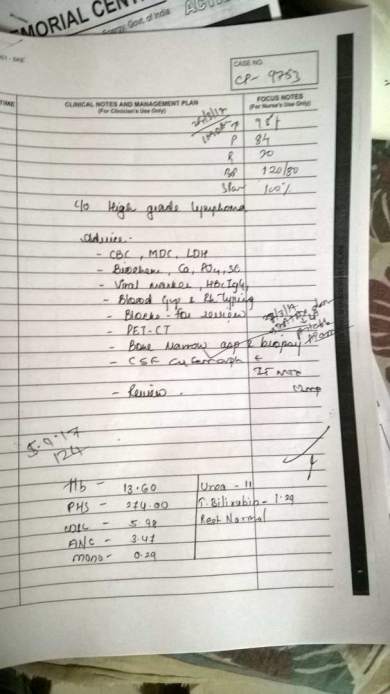 MORIAL CEN
Energy Govt. of India
ACT
CASE NO.
CP- 9753
TIME
CLINICAL NOTES AND MANAGEMENT PLAN
(For Clinician's Use Only)
FOCUS NOTES
(For Nurse's Use Only)
P 84
R 20
BP 120/80
100%
c/o High grade lymphoma
Advice -
- CBC, MDC, LDH
- Biochem, Ca, PO4,
- Viral marker, HBcIgG,
- Blood Grp & Rh Typing
- Blocks for review
- PET-CT
- Bone Marrow asp & biopsy
- CSF
IT MTX
- Review
5.9.17
124
Hb - 13.60
Urea - 11
274.00
T. Bilirubin - 1.29
5.98
Rest Normal
ANC - 3.47
Mono - 0.29